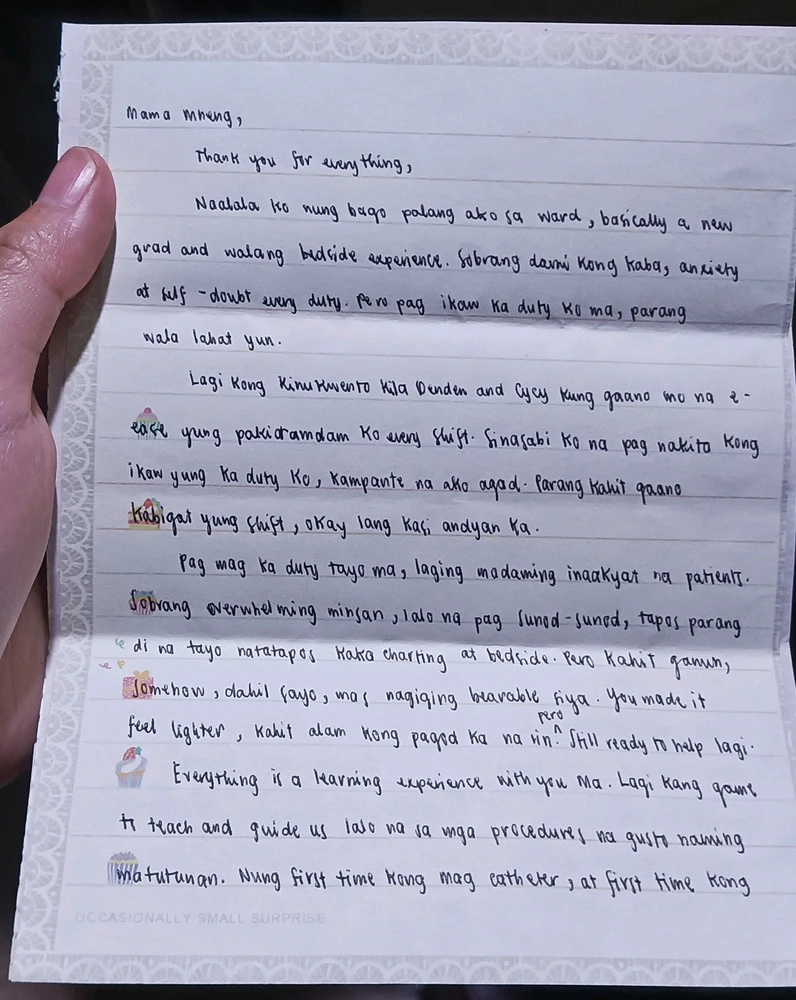 Mama Mheng,
Thank you for everything,
Naalala ko nung bago palang ako sa ward, basically a new
grad and walang bedside experience. Sobrang dami kong kaba, anxiety
at self-doubt every duty. Pero pag ikaw ka duty ko ma, parang
wala lahat yun.
Lagi kong kinukwento kila Denden and Cycy kung gaano mo na e-
ease yung pakiramdam ko every shift. Sinasabi ko na pag nakita kong
ikaw yung ka duty ko, kampante na ako agad. Parang kahit gaano
kabigat yung shift, okay lang kasi andyan ka.
Pag mag ka duty tayo ma, laging madaming inaakyat na patients.
Sobrang overwhelming minsan, lalo na pag sunod-sunod, tapos parang
di na tayo natatapos kaka charting at bedside. Pero kahit ganun,
somehow, dahil sayo, mas nagiging bearable siya. You made it
feel lighter, kahit alam kong pagod ka na rin. pero Still ready to help lagi.
Everything is a learning experience with you Ma. Lagi kang game
to teach and guide us lalo na sa mga procedures na gusto naming
matutunan. Nung first time kong mag catheter, at first time kong
OCCASIONALLY SMALL SURPRISE